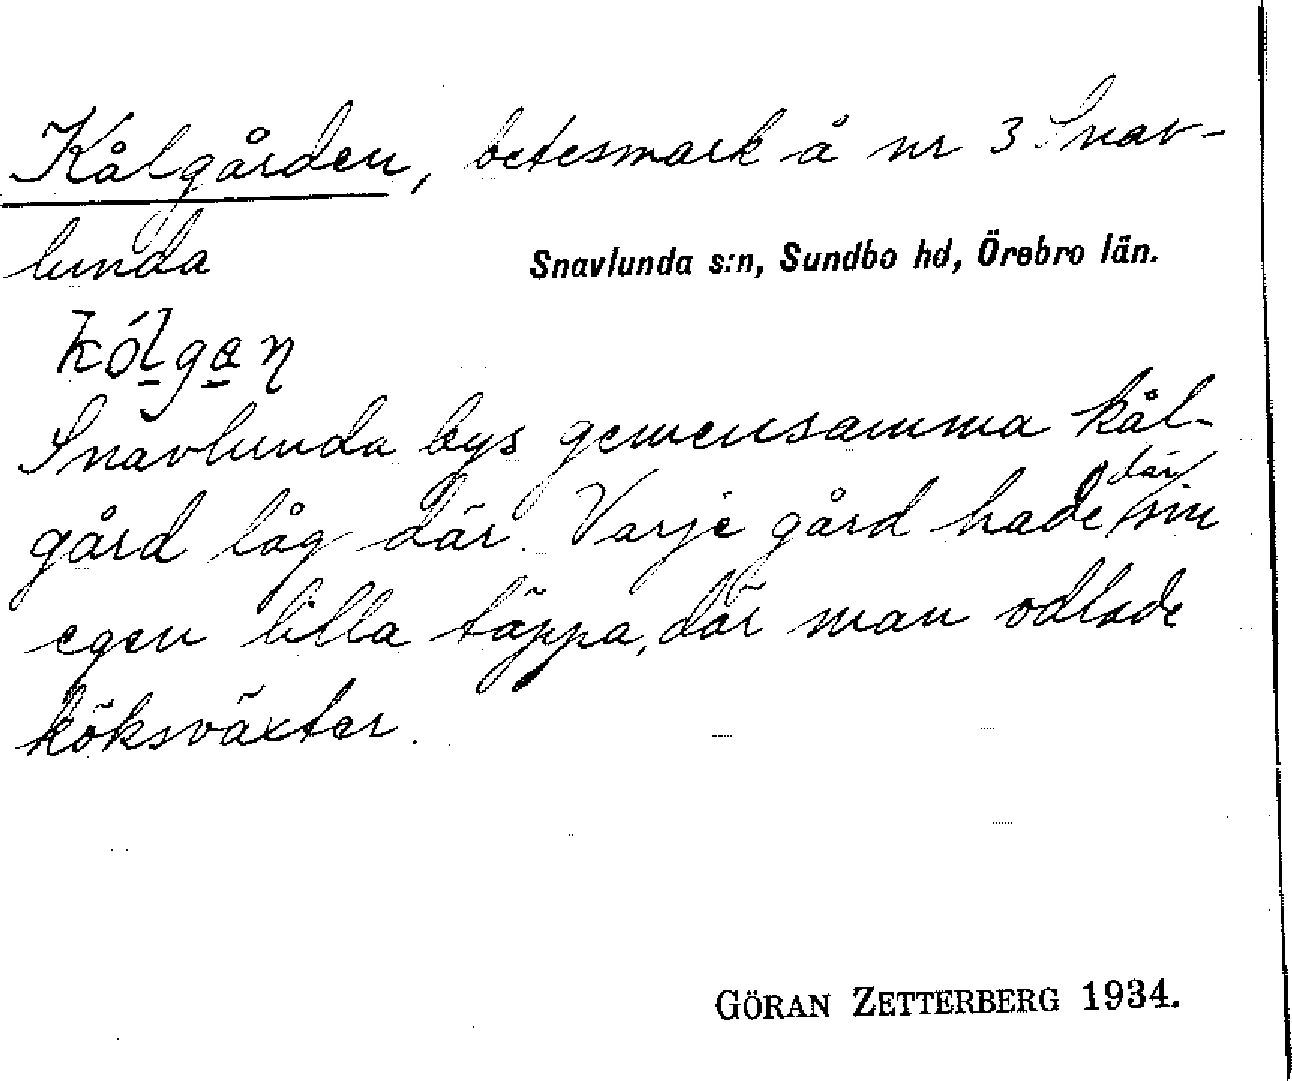 Kålgården, betesmark å nr 3 Snav-
lunda
Snavlunda s:n, Sundbo hd, Örebro län.
kólgan
Snavlunda bys gemensamma kål-
gård låg där. Varje gård hade där sin
egen lilla täppa, där man odlade
köksväxter.
GÖRAN ZETTERBERG 1934.